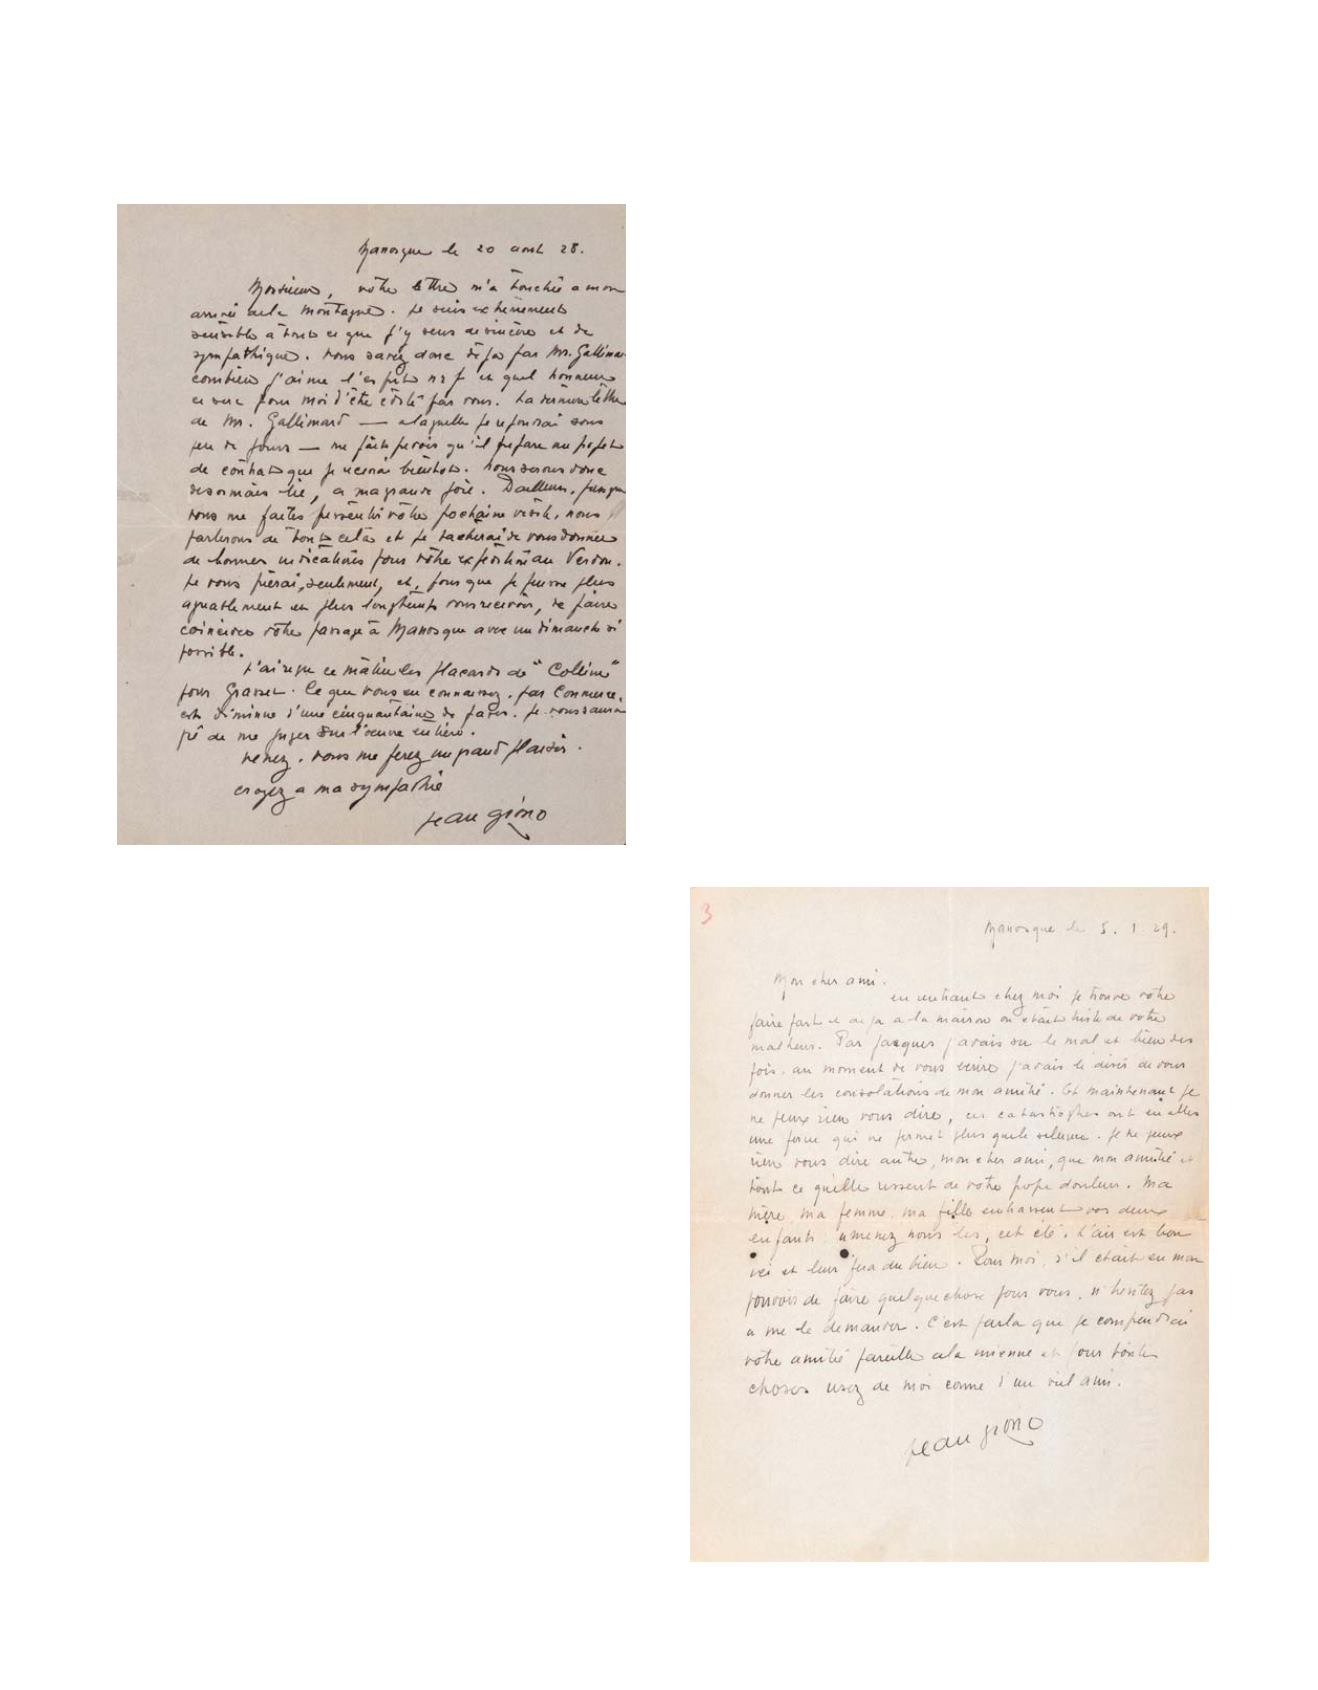 Manosque le 20 aout 28.
Monsieur, vôtre lettre m'a touchée a mon
arrivée de la montagne. Je suis extrêmement
sensible à tout ce que j'y sens de sincère et de
sympathique. Vous savez donc déja par Mr. Gallimard
combien j'aime l'esprit nrf et quel honneur
ce sera pour moi d'être édité par vous. La dernière lettre
de Mr. Gallimard — a laquelle je repondrai sous
peu de jours — me fait prevoir qu'il prepare un projet
de contrat que je recevrai bientot. Nous serons donc
desormais lié, a ma grande joie. D'ailleurs, puisque
vous me faites pressentir vôtre prochaine visite, nous
parlerons de tout cela et je tacherai de vous donner
de bonnes indications pour vôtre expedition au Verdon.
Je vous prierai, seulement, et, pour que je puisse plus
agreablement et plus longtemps vous recevoir, de faire
coincider vôtre passage à Manosque avec un dimanche si
possible.
J'ai reçu ce matin les placards de "Colline"
pour Grasset. Ce que vous en connaissez, par Commerce,
est diminue d'une cinquantaine de pages. Je vous saurai
gré de me juger sur l'oeuvre entière.
Venez. vous me ferez un grand plaisir.
croyez a ma sympathie
Jean Giono
3
Manosque le 5. 1 29.
Mon cher ami.
en rentrant chez moi je trouve vôtre
faire part et deja a la maison on etait triste de votre
malheur. Par Jacques j'avais su le mal et bien des
fois. au moment de vous ecrire j'avais le désir de vous
donner les consolations de mon amitié. Et maintenant je
ne peux rien vous dire, ces catastrophes ont en elles
une force qui ne permet plus que le silence. Je ne peux
rien vous dire autre, mon cher ami, que mon amitié et
tout ce qu'elle ressent de votre propre douleur. Ma
mère. ma femme. ma fille embrassent vos deux
enfants amenez nous les, cet été. L'air est bon
ici et leur fera du bien. Pour moi, s'il etait en mon
pouvoir de faire quelque chose pour vous, n'hesitez pas
a me le demander. C'est par la que je comprendrai
vôtre amitié pareille a la mienne et pour toutes
choses usez de moi comme d'un vieil ami.
Jean Giono